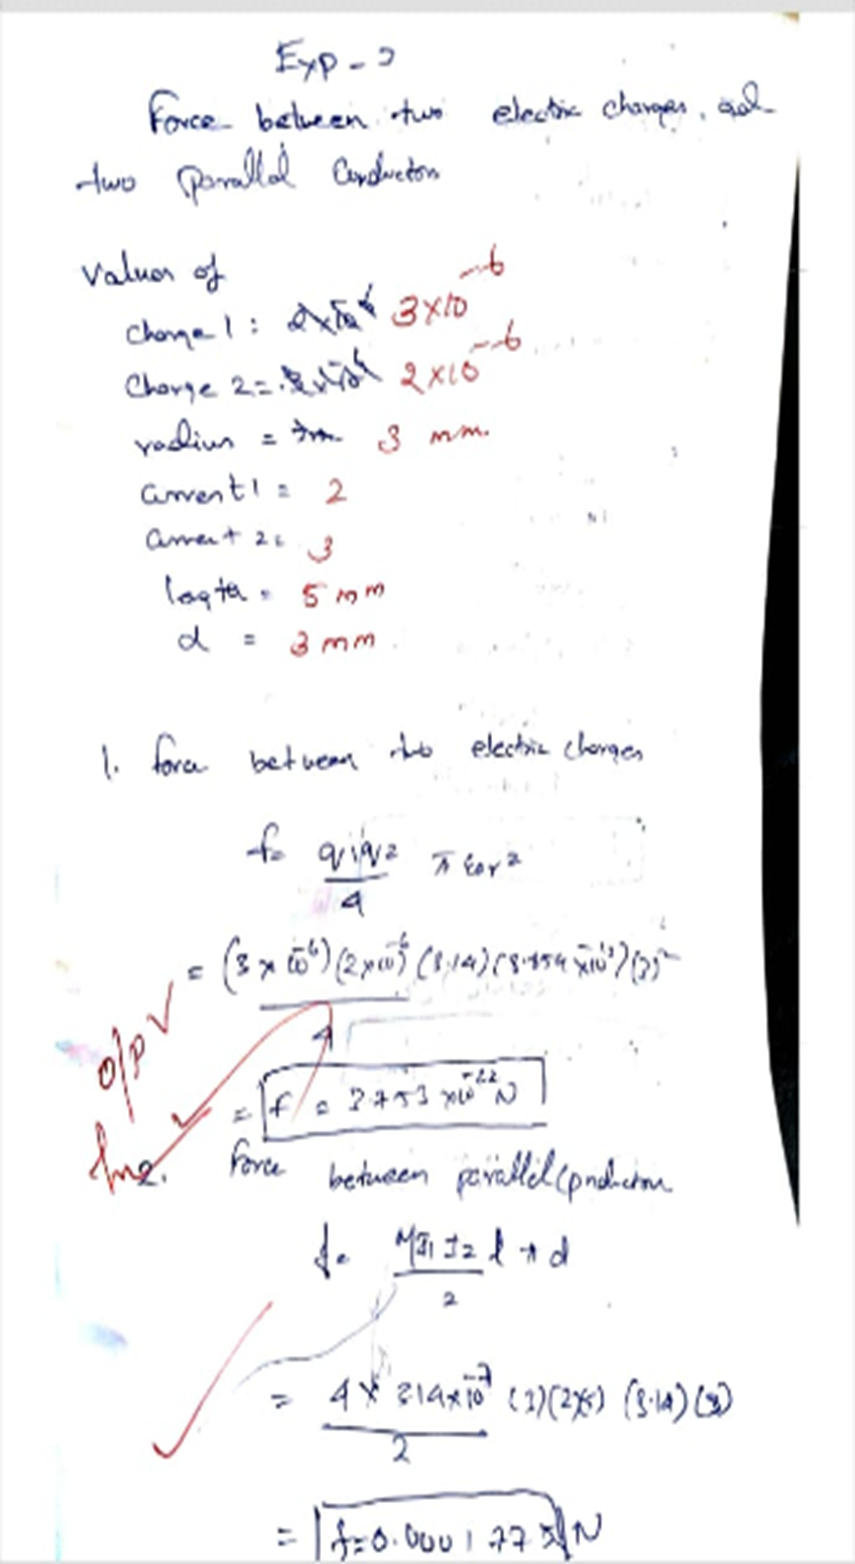 Exp - 2
Force between two electric charges, and
two parallel Conductors
Values of
charge 1 : 3×10⁻⁶
Charge 2 = 2×10⁻⁶
radius = 3 mm.
Current 1 = 2
Current 2 = 3
length = 5 mm
d = 3 mm
1. force between two electric charges
f = q1q2 / 4 π ε0 r²
= (3 × 10⁻⁶) (2×10⁻⁶) (3.14) (8.854 ×10⁻¹²) (3)² / 4
o/p ✓
= f = 3.753 ×10⁻²² N
2. Force between parallel Conductors
f = I1 I2 l π d / 2
= 4 × 3.14×10⁻⁷ (3)(2×5) (3.14) (3) / 2
= f = 0.0001775 N